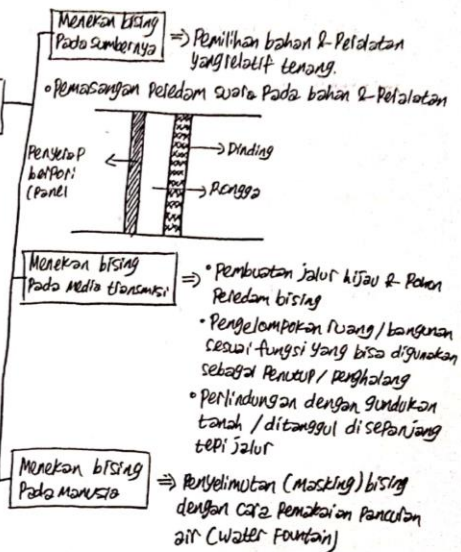 Menekan bising
Pada Sumbernya
⇒ Pemilihan bahan & Peralatan
yang relatif tenang.
• Pemasangan Peredam suara Pada bahan & Peralatan
Penyerap
berpori
(Panel
Dinding
Rongga
Menekan bising
Pada Media transmisi
⇒ • Pembuatan jalur hijau & Pohon
Peredam bising
• Pengelompokan ruang / bangunan
sesuai fungsi yang bisa digunakan
sebagai Penutup / penghalang
• Perlindungan dengan gundukan
tanah / ditanggul disepanjang
tepi jalur
Menekan bising
Pada Manusia
⇒ Penyelimutan (masking) bising
dengan cara Pemakaian Pancuran
air (water Fountain)